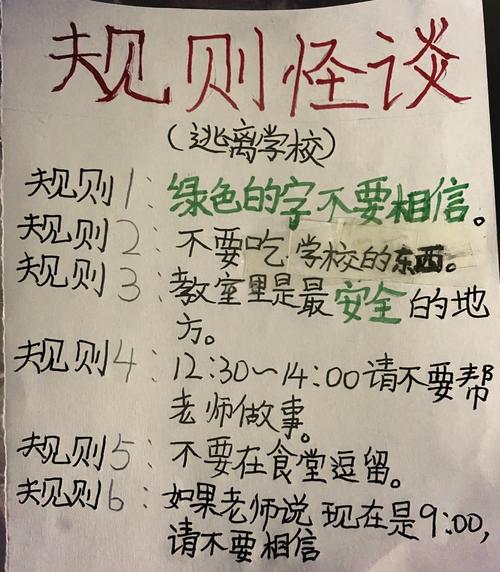 规则怪谈
(逃离学校)
规则1：绿色的字不要相信。
规则2：不要吃学校的东西。
规则3：教室里是最安全的地
方。
规则4：12:30～14:00请不要帮
老师做事。
规则5：不要在食堂逗留。
规则6：如果老师说现在是9:00,
请不要相信